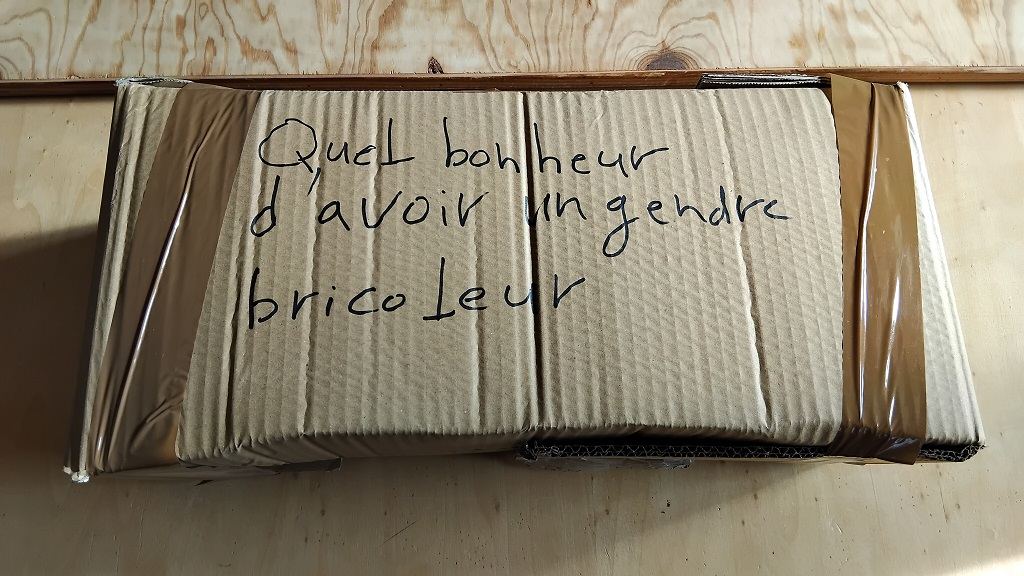 Quel bonheur
d'avoir un gendre
bricoleur